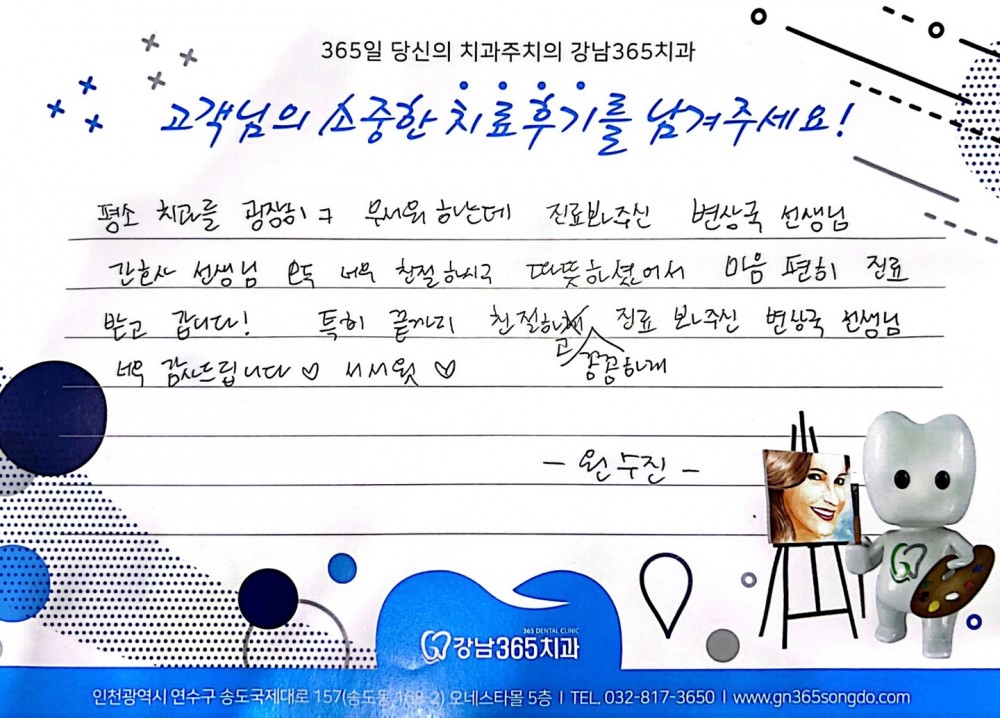 365일 당신의 치과주치의 강남365치과
고객님의 소중한 치료후기를 남겨주세요!
평소 치과를 굉장히 무서워 하는데 진료봐주신 변상국 선생님
간호사 선생님 모두 너무 친절하시고 따뜻하셨어서 마음 편히 진료
받고 갑니다! 특히 끝까지 친절하고 꼼꼼하게 진료 봐주신 변상국 선생님
너무 감사드립니다 ♡ ♡
- 원수진 -
365 DENTAL CLINIC
강남365치과
인천광역시 연수구 송도국제대로 157(송도동 168-2) 오네스타몰 5층 | TEL. 032-817-3650 | www.gn365songdo.com